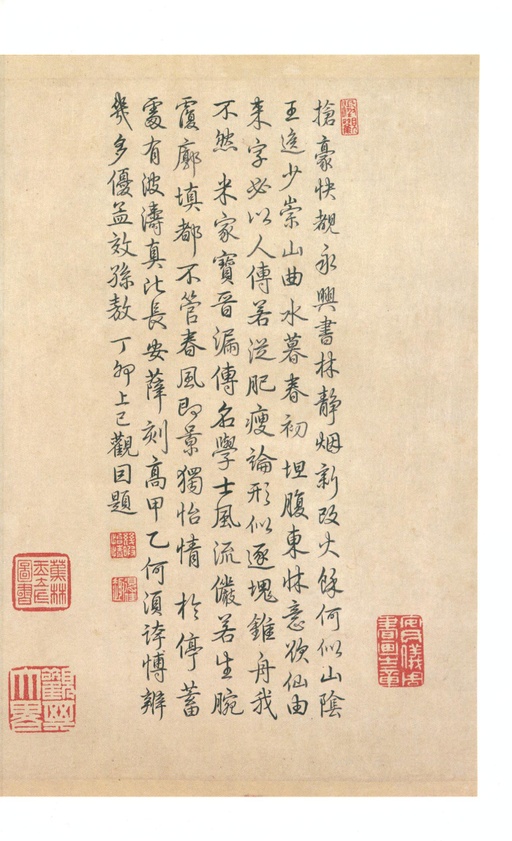 搶豪快覩永興書林静烟新改火餘何似山陰
王逸少崇山曲水暮春初 坦腹東牀意欲仙由
来字必以人傳若從肥瘦論形似逐塊錐舟我
不然 米家寶晉漏傳名學士風流儼若生腕
覆廓填都不管春風即景獨怡情 於停蓄
處有波濤真比長安薛刻高甲乙何須誇博辨
幾多優孟效孫敖 丁卯上巳觀因題
蕉林
玉立氏
圖書
觀其大略
安儀周
書畫之章